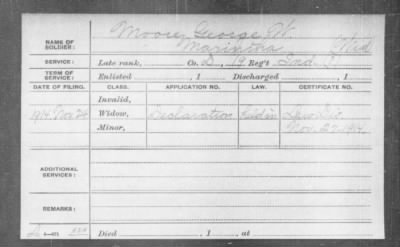 NAME OF SOLDIER:
Moore, George W.
SERVICE:
Late rank, Co. D, 19 Reg't Ind. I
TERM OF SERVICE:
Enlisted , 1 Discharged , 1
DATE OF FILING. CLASS. APPLICATION NO. LAW. CERTIFICATE NO.
Invalid,
1914 Nov 24 Widow, Declaration Law Div
Minor, Nov. 27, 1914
ADDITIONAL SERVICES:
REMARKS:
Died , 1 , at